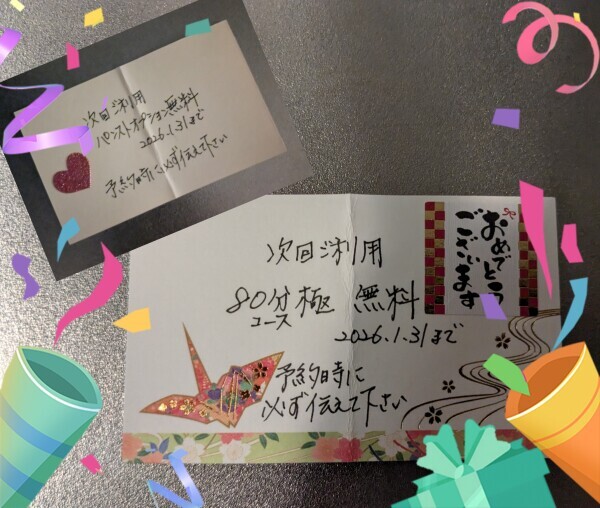 次回ご利用
パンストオプション無料
2026.1.31まで
予約時に必ず伝えて下さい
おめでとう
ございます
次回ご利用
80分極 無料
コース
2026.1.31まで
予約時に
必ず伝えて下さい